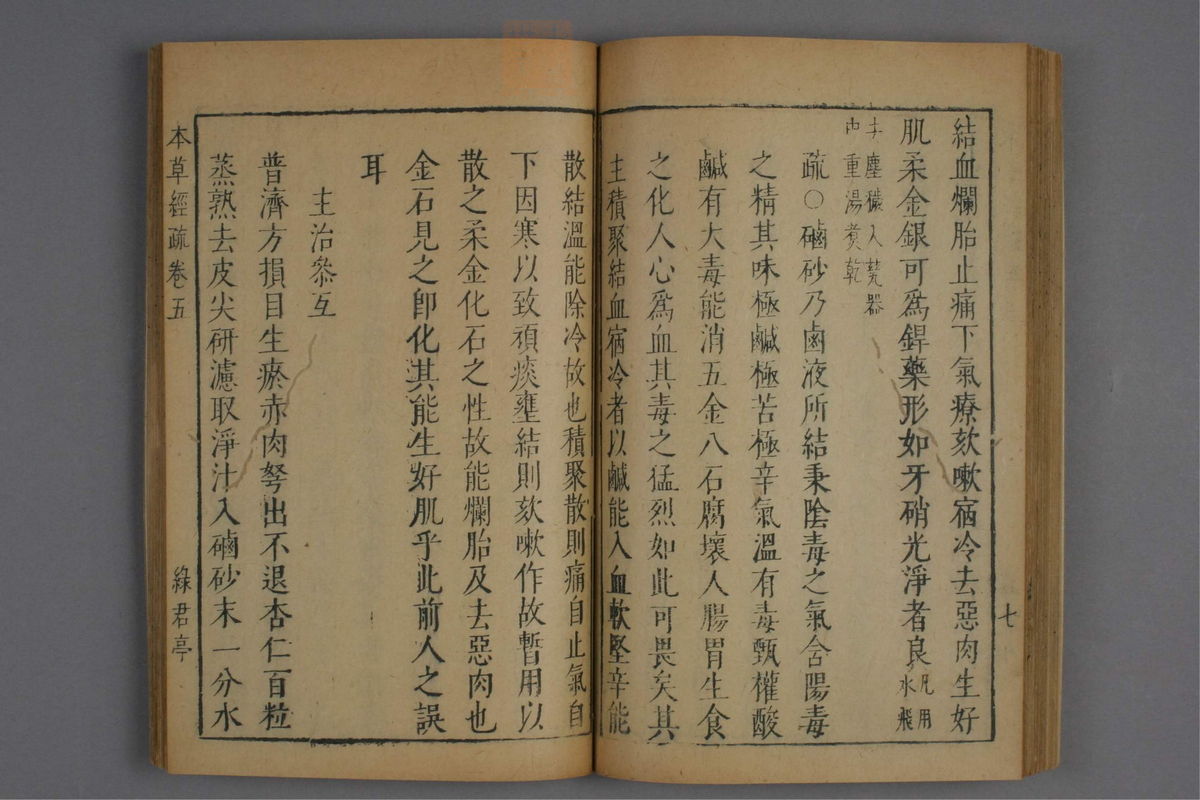 七
結血爛胎止痛下氣療欬嗽宿冷去惡肉生好
肌柔金銀可爲銲藥形如牙硝光淨者良凡用
水飛
去塵穢入甆器
內重湯煑乾
疏○磠砂乃鹵液所結秉陰毒之氣含陽毒
之精其味極鹹極苦極辛氣溫有毒甄權酸
鹹有大毒能消五金八石腐壞人腸胃生食
之化人心爲血其毒之猛烈如此可畏矣其
主積聚結血宿冷者以鹹能入血軟堅辛能
散結溫能除冷故也積聚散則痛自止氣自
下因寒以致頑痰壅結則欬嗽作故暫用以
散之柔金化石之性故能爛胎及去惡肉也
金石見之卽化其能生好肌乎此前人之誤
耳
主治叅互
普濟方損目生瘀赤肉努出不退杏仁百粒
蒸熟去皮尖研濾取淨汁入磠砂末一分水
本草經疏卷五 綠君亭